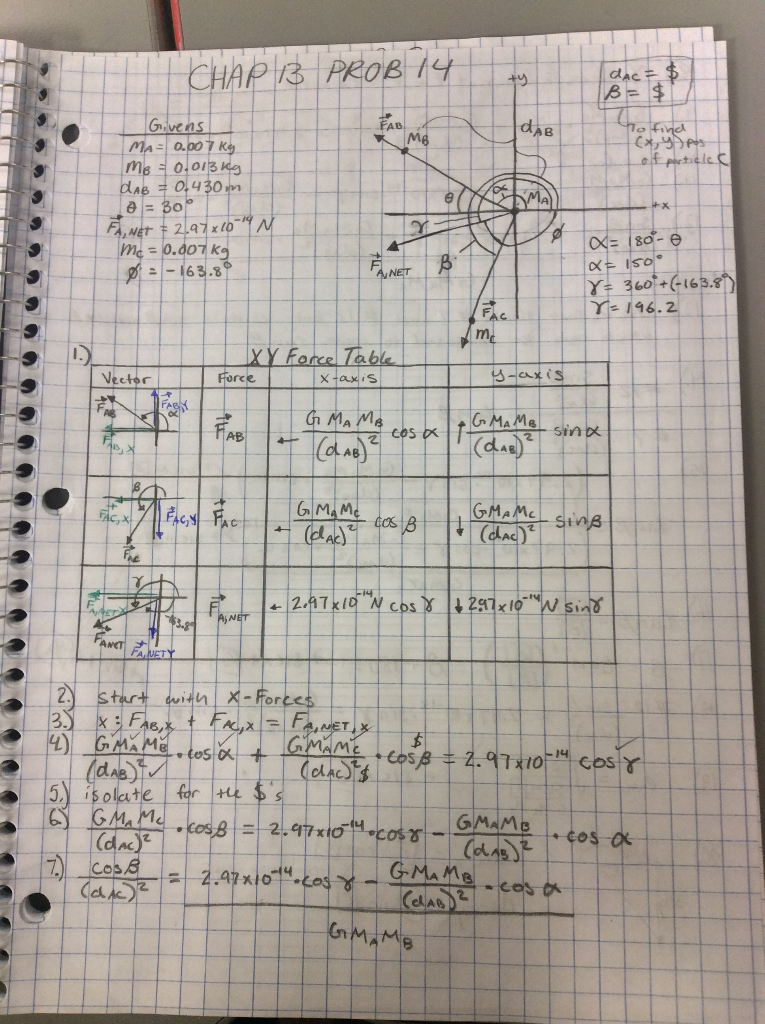 CHAP 13 PROB 14
Givens
MA = 0.007 kg
MB = 0.013 kg
dAB = 0.430 m
θ = 30°
F⃗A,NET = 2.97x10⁻¹⁴ N
MC = 0.007 kg
φ = -163.8°
+y
F⃗AB
MB
dAB
θ
α
MA
+x
γ
F⃗A,NET
β
φ
F⃗AC
MC
dAC = $
β = $
To find
(x,y) pos
of particle C
α = 180° - θ
α = 150°
γ = 360° + (-163.8°)
γ = 196.2
1.)
XY Force Table
Vector Force x-axis y-axis
F⃗AB F⃗AB,Y α F⃗AB,X
F⃗AB ← GMAMB/(dAB)² cos α ↑ GMAMB/(dAB)² sin α
β F⃗AC,X F⃗AC,Y F⃗AC
F⃗AC ← GMAMC/(dAC)² cos β ↓ GMAMC/(dAC)² sin β
γ F⃗A,NET,X -163.8° F⃗A,NET F⃗A,NET,Y
F⃗A,NET ← 2.97x10⁻¹⁴N cos γ ↓ 2.97x10⁻¹⁴N sin γ
2.) start with x-Forces
3.) x: FAB,x + FAC,x = FA,NET,x
4.) GMAMB/(dAB)² · cos α + GMAMC/(dAC)² $ · cos β $ = 2.97x10⁻¹⁴ cos γ
5.) isolate for the $'s
6.) GMAMC/(dAC)² · cos β = 2.97x10⁻¹⁴ · cos γ - GMAMB/(dAB)² · cos α
7.) cos β/(dAC)² = 2.97x10⁻¹⁴ · cos γ - GMAMB/(dAB)² · cos α
GMAMB